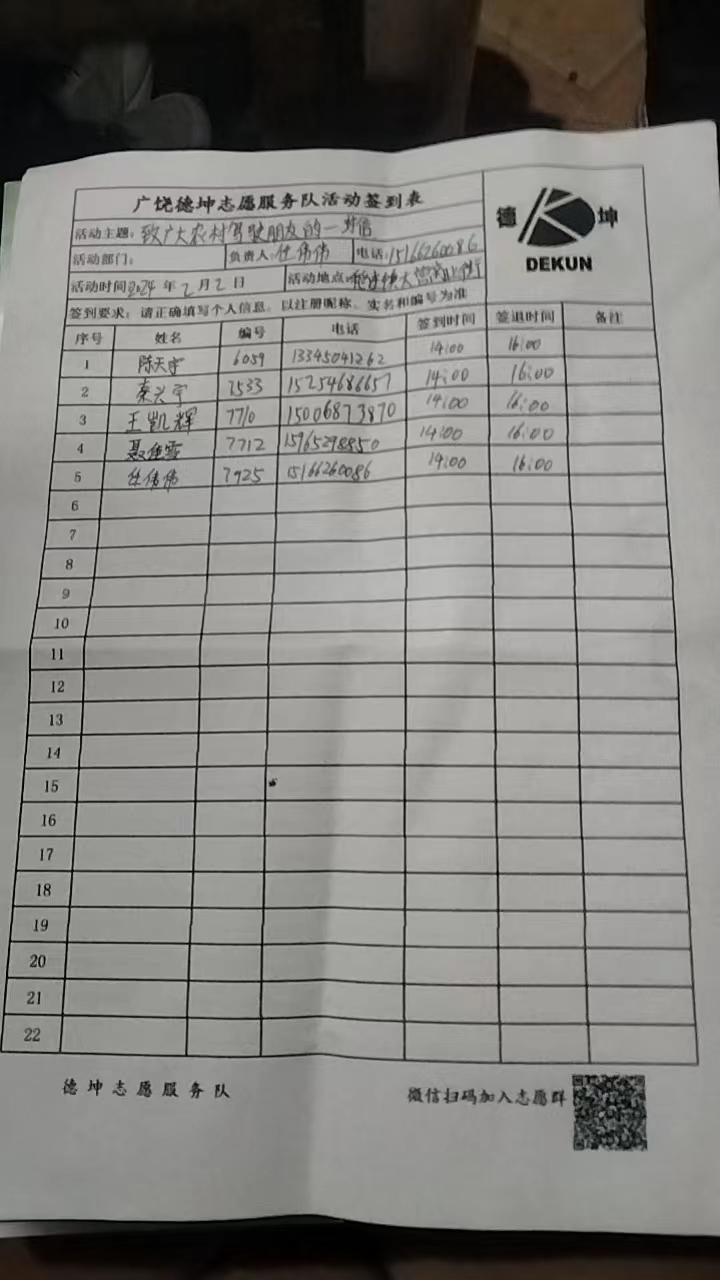 广饶德坤志愿服务队活动签到表
德 坤
DEKUN
活动主题: 致广大农村驾驶朋友的一封信
活动部门: 负责人: 任伟伟 电话: 15166260086
活动时间 2024 年 2 月 2 日 活动地点:
签到要求: 请正确填写个人信息, 以注册昵称、实名和编号为准
序号 姓名 编号 电话 签到时间 签退时间 备注
1 陈天宇 6059 13345041262 14:00 16:00
2 秦兴宇 7533 15254686657 14:00 16:00
3 王凯辉 7710 15006873870 14:00 16:00
4 7712 15965298850 14:00 16:00
5 任伟伟 7925 15166260086 14:00 16:00
6
7
8
9
10
11
12
13
14
15
16
17
18
19
20
21
22
德坤志愿服务队 微信扫码加入志愿群